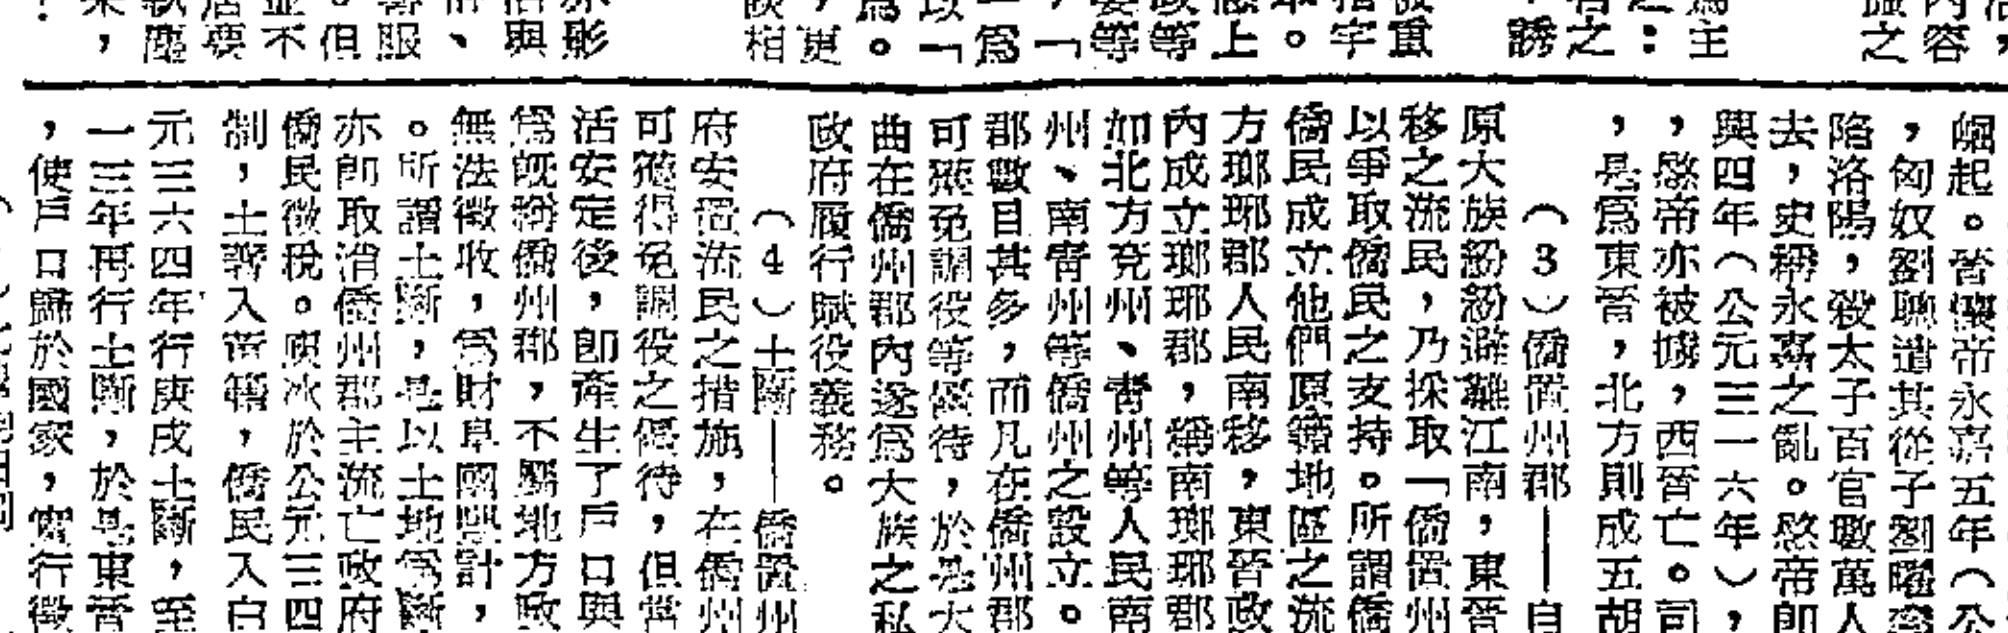 ，
內容
之
爲主
之：
者之
誘
重
字
。
上
等
等
，「
一爲
以「
爲。
，更
相
影
與
、
服
但
不
要
塵
，
崛起。晉懷帝永嘉五年（公
，匈奴劉聰遣其從子劉曜
陷洛陽，殺太子百官數萬人
去，史稱永嘉之亂。愍帝卽
興四年（公元三一六年），
，愍帝亦被擄，西晉亡。司
，是爲東晉，北方則成五胡
（3）僑置州郡——自
原大族紛紛避難江南，東晉
移之流民，乃採取「僑置州
以爭取僑民之支持。所謂僑
僑民成立他們原籍地區之流
方瑯琊郡人民南移，東晉政
內成立瑯琊郡，稱南瑯琊郡
如北方兗州、靑州等人民南
州、南靑州等僑州之設立。
郡數目甚多，而凡在僑州郡
可獲免調役等優待，於是大
曲在僑州郡內遂爲大族之私
政府履行賦役義務。
（4）土斷——僑置州
府安置流民之措施，在僑州
可獲得免調役之優待，但當
活安定後，卽產生了戶口與
爲旣稱僑州郡，不屬地方政
無法徵收，爲財阜國豐計，
。所謂土斷，是以土地爲斷
亦卽取消僑州郡主流亡政府
僑民徵稅。庾冰於公元三四
制，土著入黃籍，僑民入白
元三六四年行庚戌土斷，至
一三年再行土斷，於是東晉
，使戶口歸於國家，實行徵